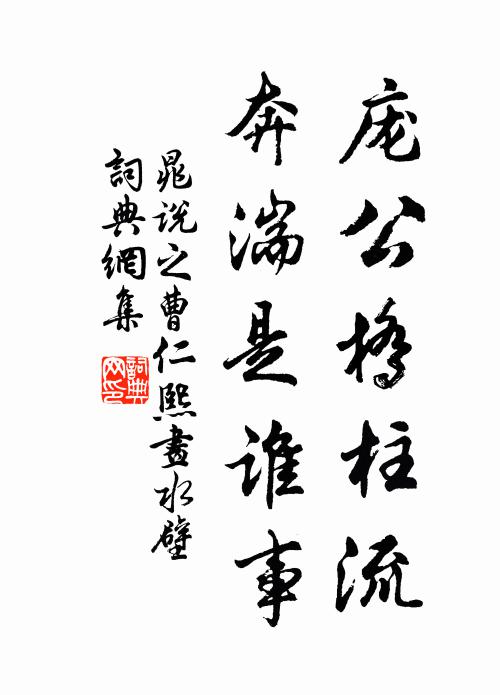 庞公橋柱流
奔湍是谁事
晁说之曹仁熙畫水壁
詞典網集
詞典网印